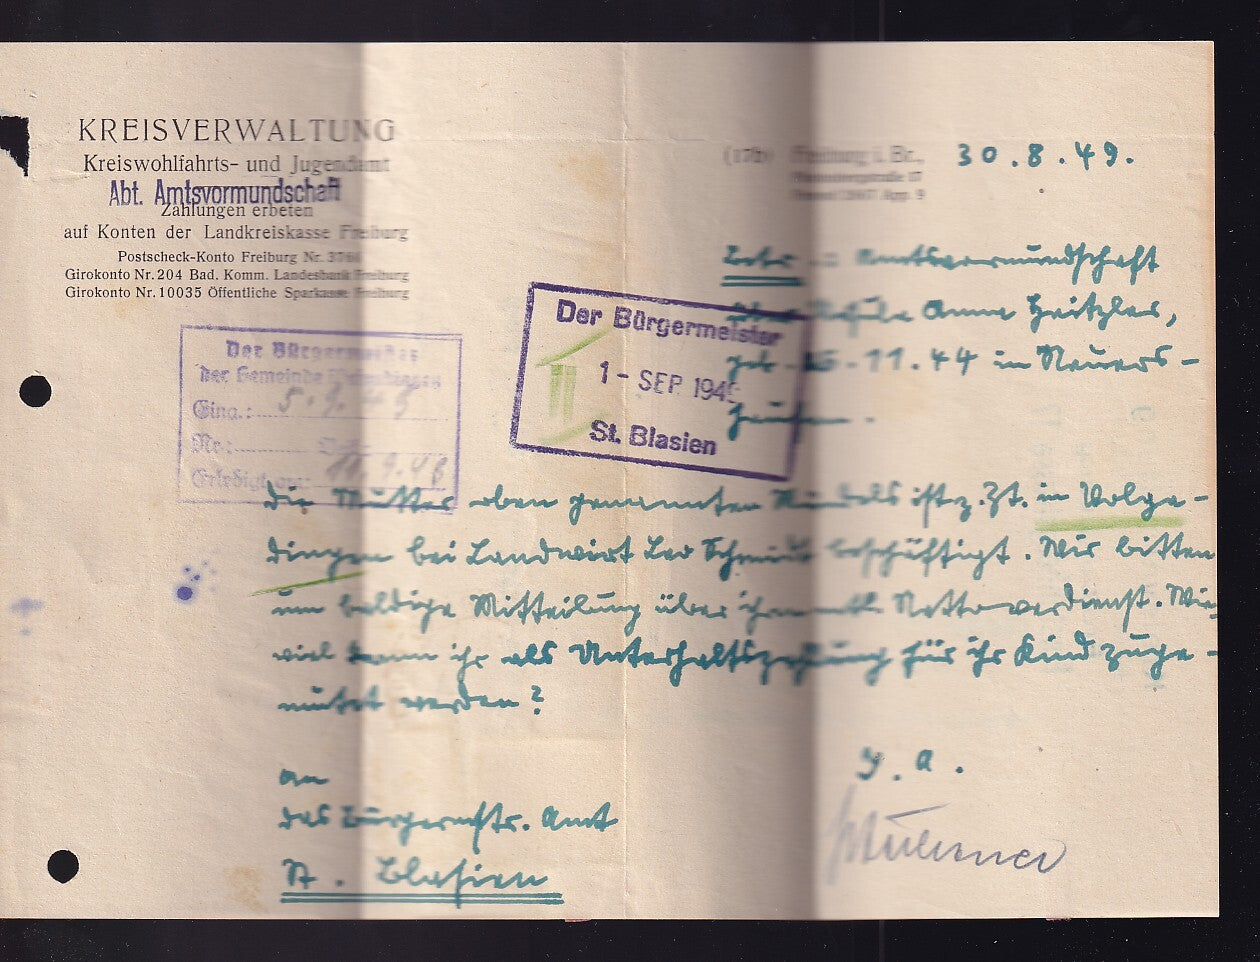 KREISVERWALTUNG
Kreiswohlfahrts- und Jugendamt
Abt. Amtsvormundschaft
Zahlungen erbeten
auf Konten der Landkreiskasse Freiburg
Postscheck-Konto Freiburg Nr.
Girokonto Nr. 204 Bad. Komm. Landesbank Freiburg
Girokonto Nr. 10035 Öffentliche Sparkasse Freiburg
(17b) Freiburg i. Br., 30.8.49.
Betr.: Amtsvormundschaft
über Anna Heitzler,
geb. 11.44 in Neuers-
hausen.
Der Bürgermeister
1 - SEP 194
St. Blasien
Der Bürgermeister
der Gemeinde
Eing.: 5.9.
Nr.:
Erledigt am:
Die Mutter oben genannten Mündels ist z. Zt. in Wolpa-
dingen bei Landwirt Leo Schmidt beschäftigt. Wir bitten
um baldige Mitteilung über ihren mtl. Nettoverdienst. Wie-
viel kann ihr als Unterhaltszahlung für ihr Kind zuge-
mutet werden?
I. A.
An
das Bürgermstr. Amt
St. Blasien